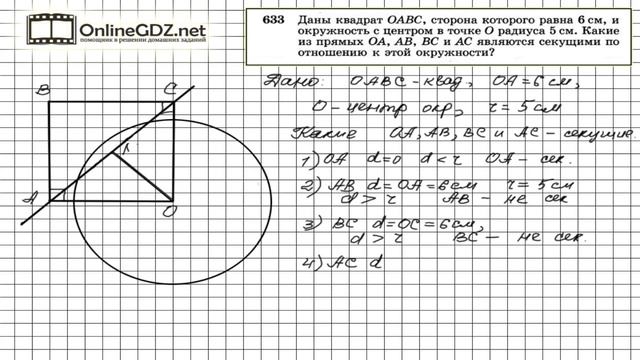 OnlineGDZ.net
помощник в решении домашних заданий
633 Даны квадрат OABC, сторона которого равна 6 см, и
окружность с центром в точке O радиуса 5 см. Какие
из прямых OA, AB, BC и AC являются секущими по
отношению к этой окружности?
B C
K
A O
Дано: OABC - квад, OA = 6 см,
O - центр окр, r = 5 см
Какие OA, AB, BC и AC - секущие.
1) OA d = 0 d < r OA - сек.
2) AB d = OA = 6 см r = 5 см
d > r AB - не сек
3) BC d = OC = 6 см,
d > r BC - не сек.
4) AC d